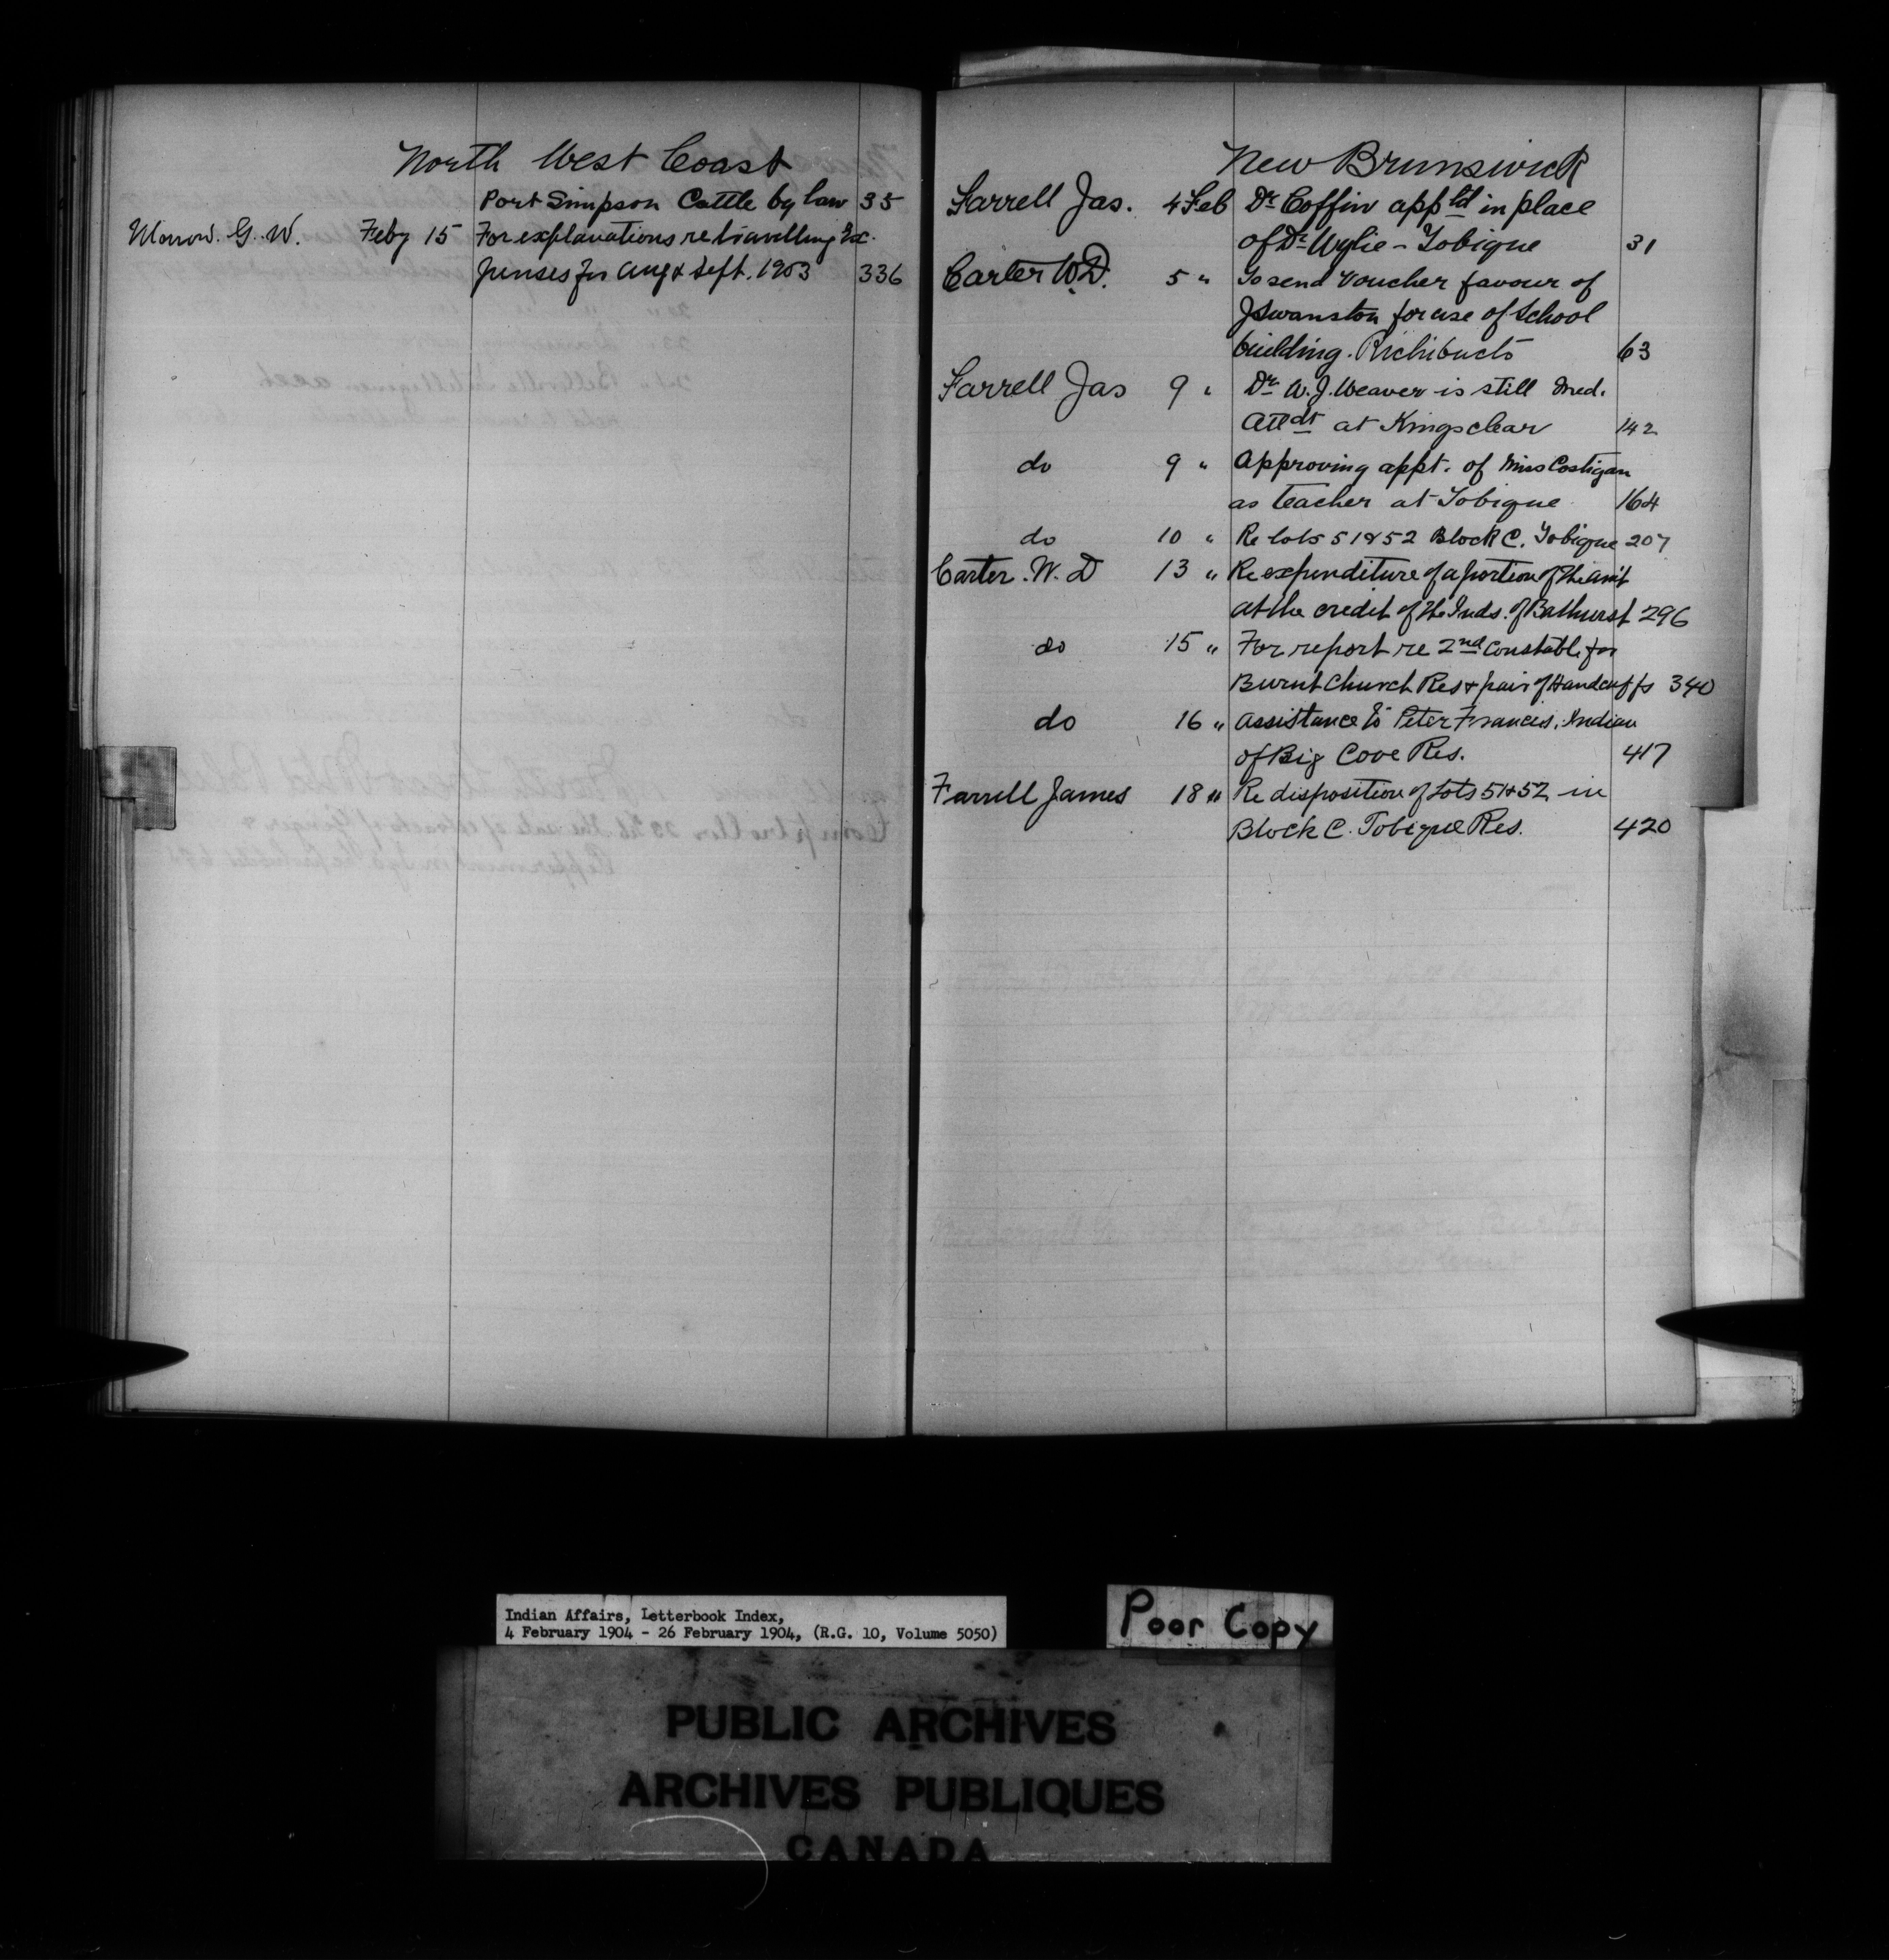 North West Coast
Port Simpson Cattle by law 35
Morrow. G. W. Feby 15 For explanations re travelling Ex-
penses for Aug & Sept. 1903 336
New Brunswick
Farrell Jas. 4 Feb Dr Coffin app'td in place
of Dr Wylie - Tobique 31
Carter W.D. 5 " To send Voucher favour of
J Swanston for use of School
building. Richibucto 63
Farrell Jas 9 " Dr W. J. Weaver is still Med.
Attdt at Kingsclear 142
do 9 " Approving appt. of Miss Costigan
as teacher at Tobique 164
do 10 " Re lots 51 & 52 Block C. Tobique 207
Carter. W. D 13 " Re expenditure of a portion of the am't
at the credit of the Inds. of Bathurst 296
do 15 " For report re 2nd Constable for
Burnt Church Res & pair of Handcuffs 340
do 16 " Assistance to Peter Francis, Indian
of Big Cove Res. 417
Farrell James 18 " Re disposition of Lots 51 & 52 in
Block C. Tobique Res. 420
Indian Affairs, Letterbook Index,
4 February 1904 - 26 February 1904, (R.G. 10, Volume 5050)
Poor Copy
PUBLIC ARCHIVES
ARCHIVES PUBLIQUES
CANADA